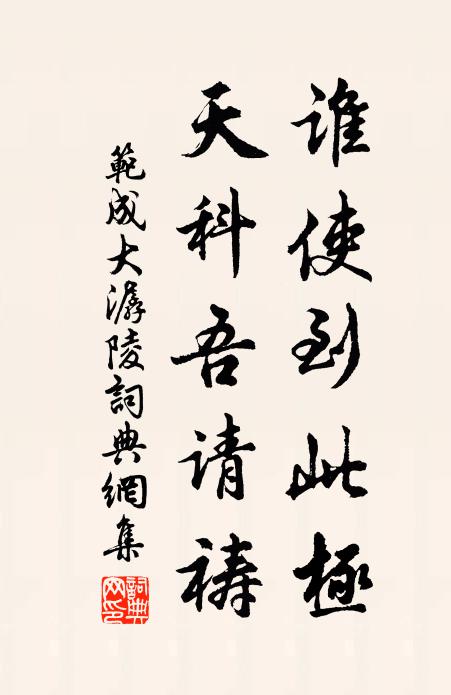 谁使到此極
天科吾请禱
範成大潺陵詞典網集
詞典網印